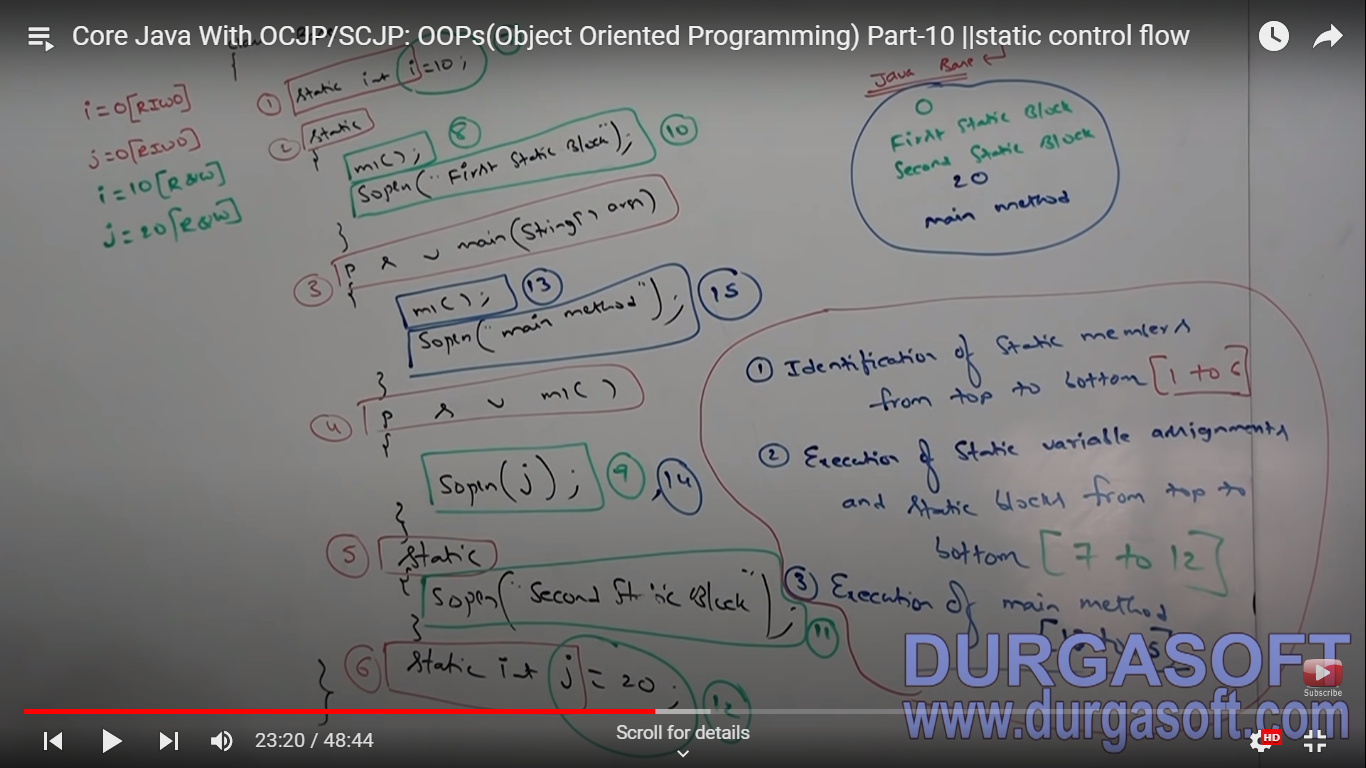 Core Java With OCJP/SCJP: OOPs(Object Oriented Programming) Part-10 ||static control flow
{
① static int i=10;
② static
{
m1(); ⑧
Sopln("First Static Block"); ⑩
}
③ P s v main(String[] args)
{
m1(); ⑬
Sopln("main method"); ⑮
}
④ P s v m1()
{
Sopln(j); ⑨, ⑭
}
⑤ static
{
Sopln("Second Static Block"); ⑪
}
⑥ static int j=20; ⑫
}
i=0[RIWO]
j=0[RIWO]
i=10[R&W]
j=20[R&W]
Java Base ↵
0
First Static Block
Second Static Block
20
main method
① Identification of static members
from top to bottom [1 to 6]
② Execution of static variable assignments
and static blocks from top to
bottom [7 to 12]
③ Execution of main method
DURGASOFT
www.durgasoft.com
Subscribe
23:20 / 48:44
Scroll for details
HD